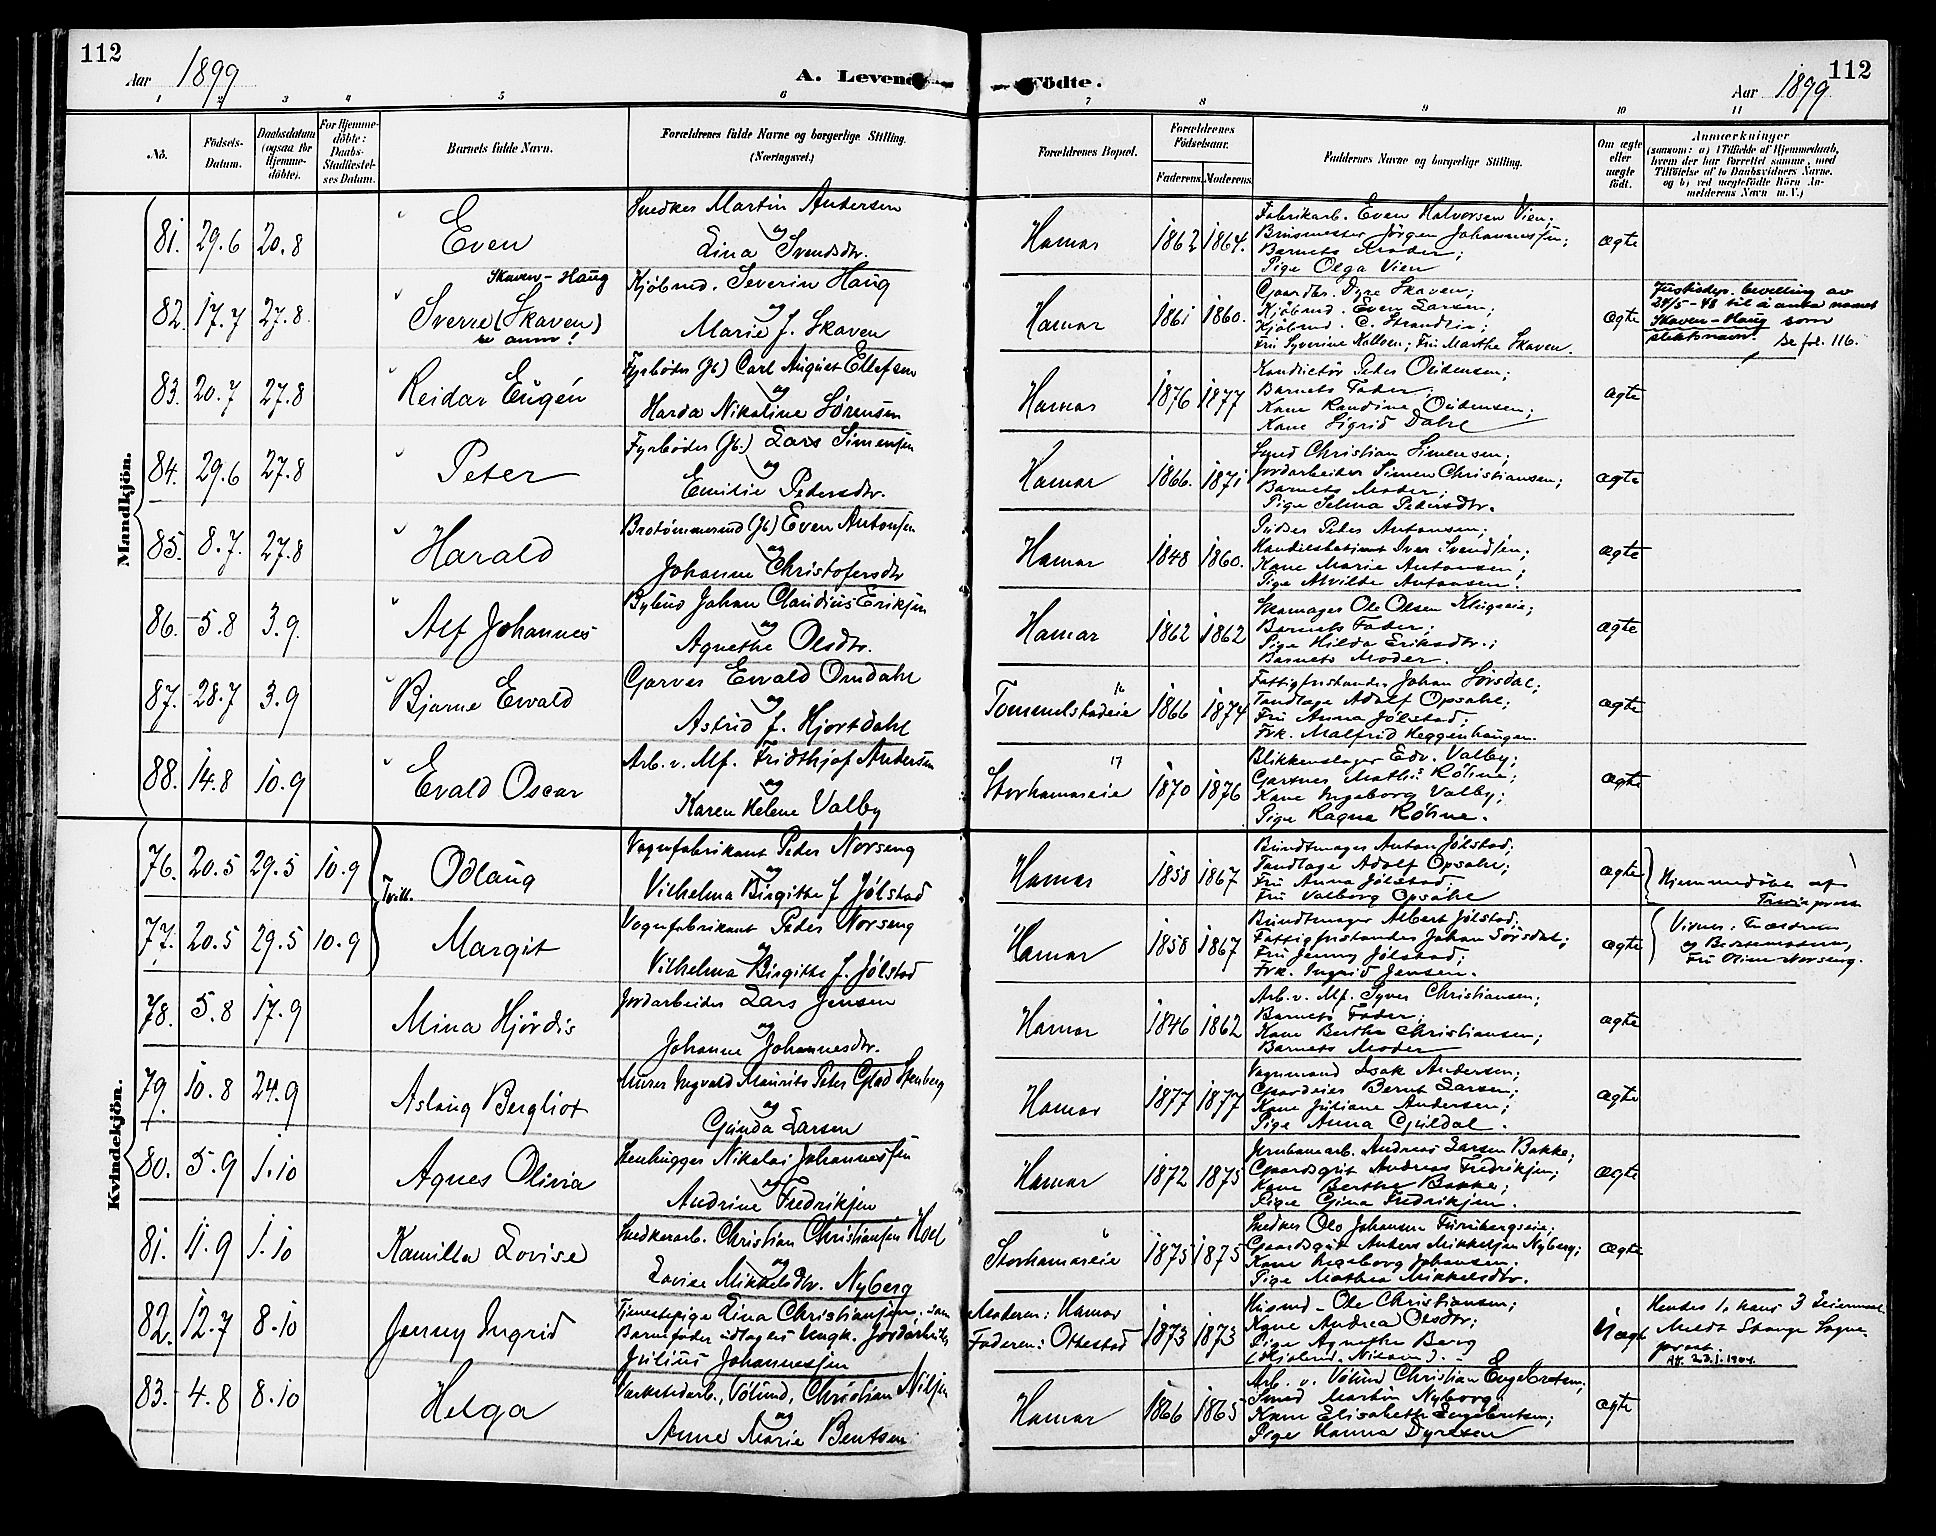 112
Aar 1899
A. Levende Födte.
Aar 1899
112
1 2 3 4 5 6 7 8 9 10 11
No.
Födsels-
Datum.
Daabsdatum
(ogsaa for
Hjemme-
döbte).
For Hjemme-
döbte:
Daabs-
Stadfæstel-
ses Datum.
Barnets fulde Navn.
Forældrenes fulde Navne og borgerlige Stilling.
(Næringsvei.)
Forældrenes Bopæl.
Forældrenes
Födselsaar.
Faderens. Moderens.
Faddernes Navne og borgerlige Stilling.
Om ægte
eller
uægte
födt.
Anmærkninger
(saasom: a) i Tilfælde af Hjemmedaab,
hvem der har forrettet samme, med
Tilföielse af to Daabsvidners Navne.
og b) ved uægtefödte Börn An-
melderens Navn m. V.)
Mandkjön.
81. 29.6 20.8 Even
Snedker Martin Andersen
og
Lina Svendsdtr.
Hamar 1862 1864.
Fabrikarb. Even Halvorsen Vien;
Jörgen Johannessen;
Barnets Moder;
Pige Olga Vien
ægte
82. 17.7 27.8 Sverre (Skaven)
Skaven-Haug
se anm!
Kjöbmd. Severin Haug
og
Marie f. Skaven
Hamar 1861 1860.
Gaardbr. Dyre Skaven;
Kjöbmd. Even Larsen;
Kjöbmd. C. Strandlie;
Fru Syverine Kolben; Fru Marthe Skaven.
ægte
Justisdep. bevilling av
24/5-48 til å anta navnet
Skaven-Haug som
slektsnavn. Se fol. 116.
83. 20.7 27.8 Reidar Eugén
Fyrböder (Jb) Carl August Ellefsen
og
Harda Nikoline Sørensen
Hamar 1876 1877
Konduktör Peder Oudensen;
Barnets Fader;
Kone Randine Oudensen;
Kone Sigrid Dahl
ægte
84. 29.6 27.8 Peter
Fyrböder (Jb.) Lars Simensen
og
Emilie Pedersdtr.
Hamar 1866. 1871
Smed Christian Simensen;
Jordarbeider Simen Christiansen;
Barnets Moder;
Pige Selma Pedersdtr.
ægte
85. 8.7. 27.8 Harald
Brotömmermd (Jb) Even Antonsen
og
Johanne Christofersdtr
Hamar 1848 1860.
Pudser Peter Antonsen;
Handelsbetjent Iver Svendsen.
Kone Marie Antonsen;
Pige Alvilde Antonsen.
ægte
86. 5.8 3.9. Alf Johannes
Bybud Johan Claudius Eriksen
og
Agnethe Olsdtr.
Hamar 1862 1862
Skomager Ole Olsen
Barnets Fader;
Pige Hilda Eriksdtr.;
Barnets Moder.
ægte
87. 28.7 3.9 Bjarne Ewald
Garver Ewald Omdahl
og
Astrid f. Hjortdahl
Tommelstadeie 16 1866 1874
Fattigforstander Johan Sörsdal;
Tandlæge Adolf Opsahl;
Fru Anna Jölstad;
Frk. Malfrid Heggenhaugen.
ægte
88. 14.8 10.9 Evald Oscar
Arb. v. Mf. Fridthjof Andersen
og
Karen Helene Valby
Storhamareie 17 1870 1876
Blikkenslager Edv. Valby;
Gartner Mathi: Röhne;
Kone Ingeborg Valby;
Pige Ragna Röhne.
ægte
Kvindekjön.
76. 20.5 29.5 10.9 Odlaug
Tvill.
Vognfabrikant Peder Norseng
og
Vilhelma Birgithe f. Jölstad
Hamar 1858 1867
Bundtmager Anton Jölstad;
Tandlæge Adolf Opsahl;
Fru Anna Jölstad;
Fru Valborg Opsahl
ægte
Hjemmedöbt af
77. 20.5 29.5 10.9 Margit
Vognfabrikant Peder Norseng
og
Vilhelma Birgithe f. Jölstad
Hamar 1858 1867
Bundtmager Albert Jölstad;
Fattigforstander Johan Sörsdal;
Fru Jenny Jölstad;
Frk. Ingrid Jensen.
ægte
Vidner: Forældrene
og Bestemoderen,
Fru Oline Norseng.
78. 5.8 17.9 Mina Hjördis
Jordarbeider Lars Jensen
og
Johanne Johannesdtr.
Hamar 1846 1862
Arb. v. Mf. Syver Christiansen;
Barnets Fader;
Kone Berthe Christiansen;
Barnets Moder
ægte
79. 10.8 24.9 Aslaug Bergliot
Murer Ingvald Maurits Peter Glad Stenberg
og
Gunda Larsen
Hamar 1877 1877
Vognmand Isak Andersen;
Gaardeier Bernt Larsen;
Kone Juliane Andersen;
Pige Anna Gjildal.
ægte
80. 5.9 1.10 Agnes Olivia
Stenhugger Nikolai Johannessen
og
Andrine Fredriksen
Hamar 1872 1875
Jernbanearb. Andreas Larsen Bakke;
Gaardsgut Andreas Fredriksen;
Kone Berthe Bakke;
Pige Gina Fredriksen.
ægte
81. 11.9 1.10 Kamilla Lovise
Snedkerarb. Christian Christiansen Hoel
og
Lovise Mikkelsdtr. Nyberg
Storhamareie 1875 1875
Snedker Ole Johansen Furubergseie;
Gaardsgut Anders Mikkelsen Nyberg;
Kone Ingeborg Johansen;
Pige Mathea Mikkelsdtr.
ægte
82. 12.7 8.10 Jenny Ingrid
Tjenestepige Lina Christiansen; som
Barnefader udlægges Ungk. Jordarbeider
Julius Johannessen
Moderen: Hamar
Faderen: Ottestad
1873 1873
Husmd. Ole Christiansen;
Kone Andrea Olsdtr;
Pige Agnethe Berg
Uægte
Hendes 1, hans 3 Leiermaal
Meldt Stange Sogne-
prest.
Att 23.1.1904.
83. 4.8 8.10 Helga
Værkstedarb., Völund, Christian Nilsen
og
Anne Marie Bentsen
Hamar 1866 1865
Arb. v. Völund Christian Engebretsen;
Smed Martin Nyborg;
Kone Elisabeth Engebretsen;
Pige Hanna Dyresen
ægte